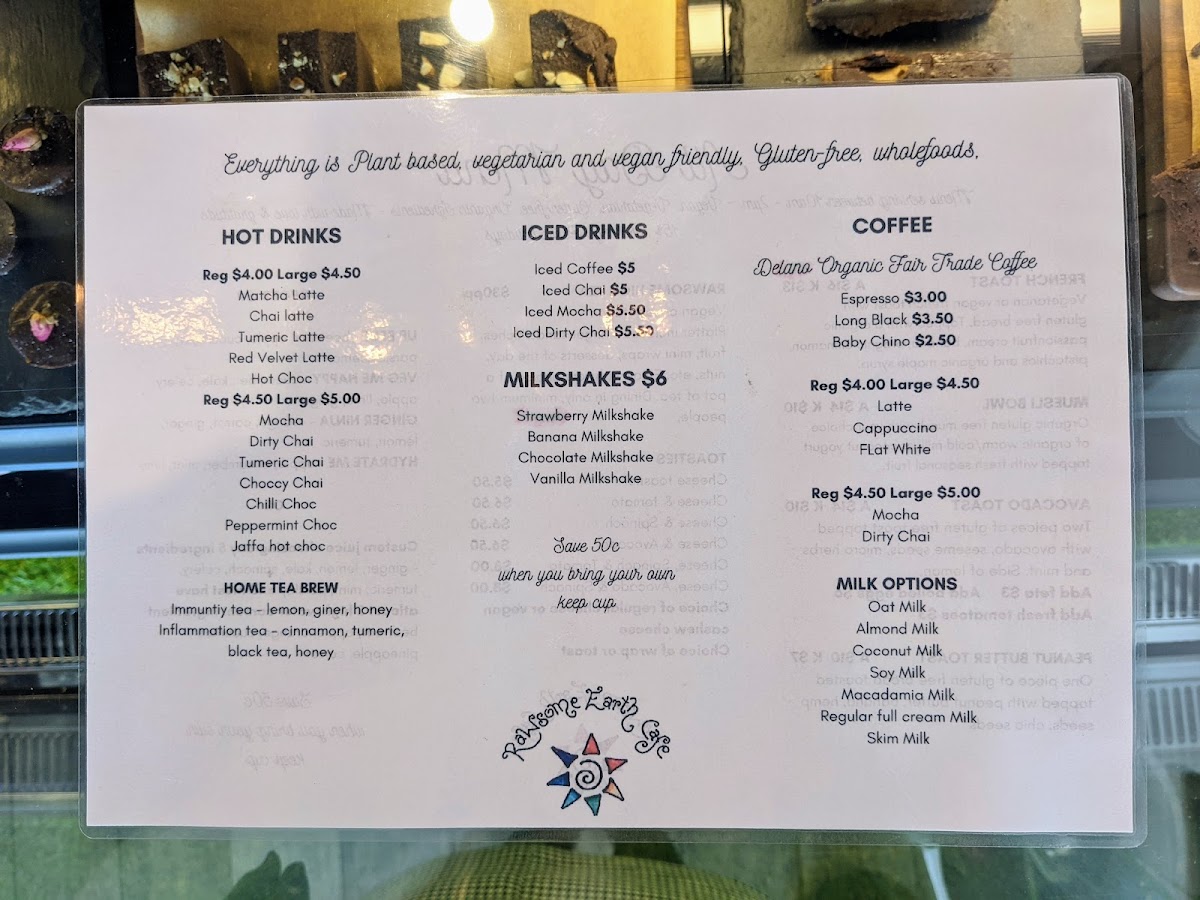 Everything is Plant based, vegetarian and vegan friendly, Gluten-free, wholefoods,
HOT DRINKS
Reg $4.00 Large $4.50
Matcha Latte
Chai latte
Tumeric Latte
Red Velvet Latte
Hot Choc
Reg $4.50 Large $5.00
Mocha
Dirty Chai
Tumeric Chai
Choccy Chai
Chilli Choc
Peppermint Choc
Jaffa hot choc
HOME TEA BREW
Immuntiy tea - lemon, giner, honey
Inflammation tea - cinnamon, tumeric,
black tea, honey
ICED DRINKS
Iced Coffee $5
Iced Chai $5
Iced Mocha $5.50
Iced Dirty Chai $5.50
MILKSHAKES $6
Strawberry Milkshake
Banana Milkshake
Chocolate Milkshake
Vanilla Milkshake
Save 50c
when you bring your own
keep cup
Rawsome Earth Cafe
COFFEE
Delano Organic Fair Trade Coffee
Espresso $3.00
Long Black $3.50
Baby Chino $2.50
Reg $4.00 Large $4.50
Latte
Cappuccino
FLat White
Reg $4.50 Large $5.00
Mocha
Dirty Chai
MILK OPTIONS
Oat Milk
Almond Milk
Coconut Milk
Soy Milk
Macadamia Milk
Regular full cream Milk
Skim Milk